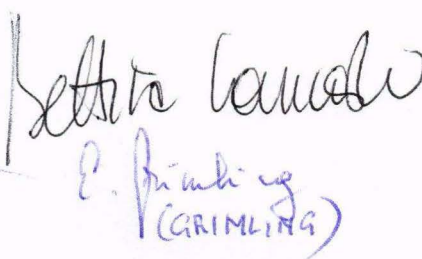 Bettina
E. Grimling
(GRIMLING)